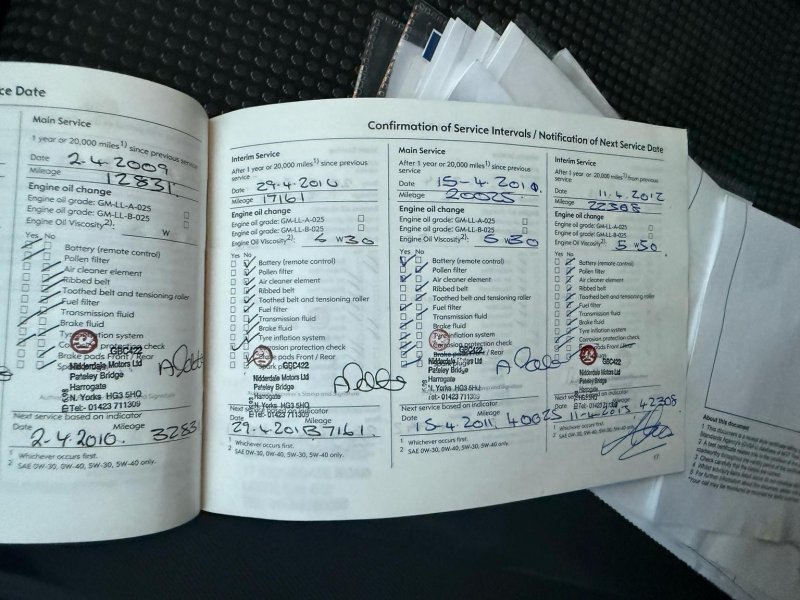 ce Date
Main Service
1 year or 20,000 miles1) since previous service
Date 2-4-2009
Mileage 12831.
Engine oil change
Engine oil grade: GM-LL-A-025
Engine oil grade: GM-LL-B-025
Engine Oil Viscosity2): W
Yes No
Battery (remote control)
Pollen filter
Air cleaner element
Ribbed belt
Toothed belt and tensioning roller
Fuel filter
Transmission fluid
Brake fluid
Tyre inflation system
protection check
Brake pads Front / Rear
GBC422
Nidderdale Motors Ltd
Pateley Bridge
Harrogate
N. Yorks HG3 5HQ
Tel:- 01423 711309
Next service based on indicator
Date Mileage
2-4-2010. 3283
1 Whichever occurs first.
2 SAE 0W-30, 0W-40, 5W-30, 5W-40 only.
Confirmation of Service Intervals / Notification of Next Service Date
Interim Service
After 1 year or 20,000 miles1) since previous
service
Date 29.4.2010
Mileage 17161
Engine oil change
Engine oil grade: GM-LL-A-025
Engine oil grade: GM-LL-B-025
Engine Oil Viscosity2): 5 W 30
Yes No
Battery (remote control)
Pollen filter
Air cleaner element
Ribbed belt
Toothed belt and tensioning roller
Fuel filter
Transmission fluid
Brake fluid
Tyre inflation system
Corrosion protection check
pads Front / Rear
GBC422
Nidderdale Motors Ltd
Pateley Bridge
Harrogate
N. Yorks HG3 5HQ
Tel:- 01423 711309
Next service based on indicator
Date Mileage
29.4.201 37161.
1 Whichever occurs first.
2 SAE 0W-30, 0W-40, 5W-30, 5W-40 only.
Main Service
After 1 year or 20,000 miles1) since previous
service
Date 15-4.2010.
Mileage 20025
Engine oil change
Engine oil grade: GM-LL-A-025
Engine oil grade: GM-LL-B-025
Engine Oil Viscosity2): 5 W 30
Yes No
Battery (remote control)
Pollen filter
Air cleaner element
Ribbed belt
Toothed belt and tensioning roller
Fuel filter
Transmission fluid
Brake fluid
Tyre inflation system
Corrosion protection check
Brake pads Front / Rear
GBC422
Nidderdale Motors Ltd
Pateley Bridge
Harrogate
N. Yorks HG3 5HQ
Tel:- 01423 711309
Next service based on indicator
Date Mileage
15-4.2011. 40025
1 Whichever occurs first.
2 SAE 0W-30, 0W-40, 5W-30, 5W-40 only.
Interim Service
After 1 year or 20,000 miles1) from previous
service
Date 11.4.2012
Mileage 22308
Engine oil change
Engine oil grade: GM-LL-A-025
Engine oil grade: GM-LL-B-025
Engine Oil Viscosity2): 5 W 30
Yes No
Battery (remote control)
Pollen filter
Air cleaner element
Ribbed belt
Toothed belt and tensioning roller
Fuel filter
Transmission fluid
Brake fluid
Tyre inflation system
Corrosion protection check
pads Front
GBC422
Nidderdale Motors Ltd
Pateley Bridge
Harrogate
N. Yorks HG3 5HQ
Tel:- 01423 711309
Next service based on indicator
Date Mileage
2013 42308
1 Whichever occurs first.
2 SAE 0W-30, 0W-40, 5W-30, 5W-40 only.
17
About this document